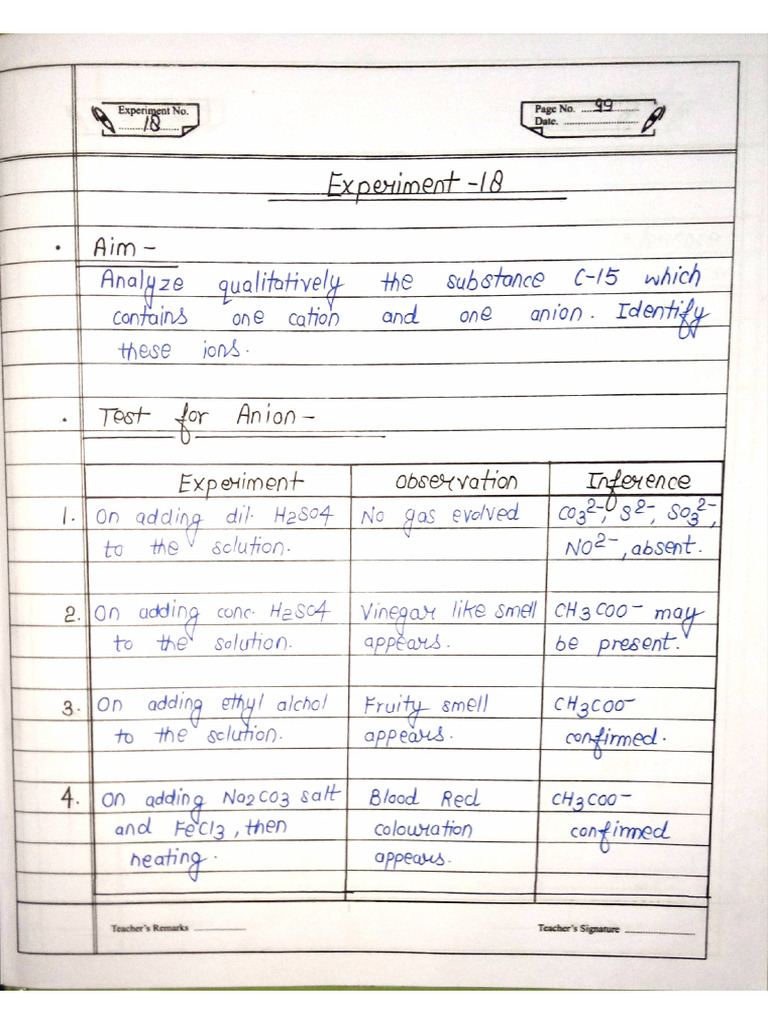 Experiment No. 18
Page No. 99
Date.
Experiment -18
• Aim -
Analyze qualitatively the substance C-15 which
contains one cation and one anion. Identify
these ions.
• Test for Anion -
Experiment Observation Inference
1. On adding dil. H2SO4 No gas evolved CO3²⁻, S²⁻, SO3²⁻,
to the solution. NO²⁻, absent.
2. On adding conc. H2SO4 Vinegar like smell CH3COO⁻ may
to the solution. appears. be present.
3. On adding ethyl alchol Fruity smell CH3COO⁻
to the solution. appears. confirmed.
4. On adding Na2CO3 salt Blood Red CH3COO⁻
and FeCl3, then colouration confirmed
heating. appears.
Teacher's Remarks
Teacher's Signature